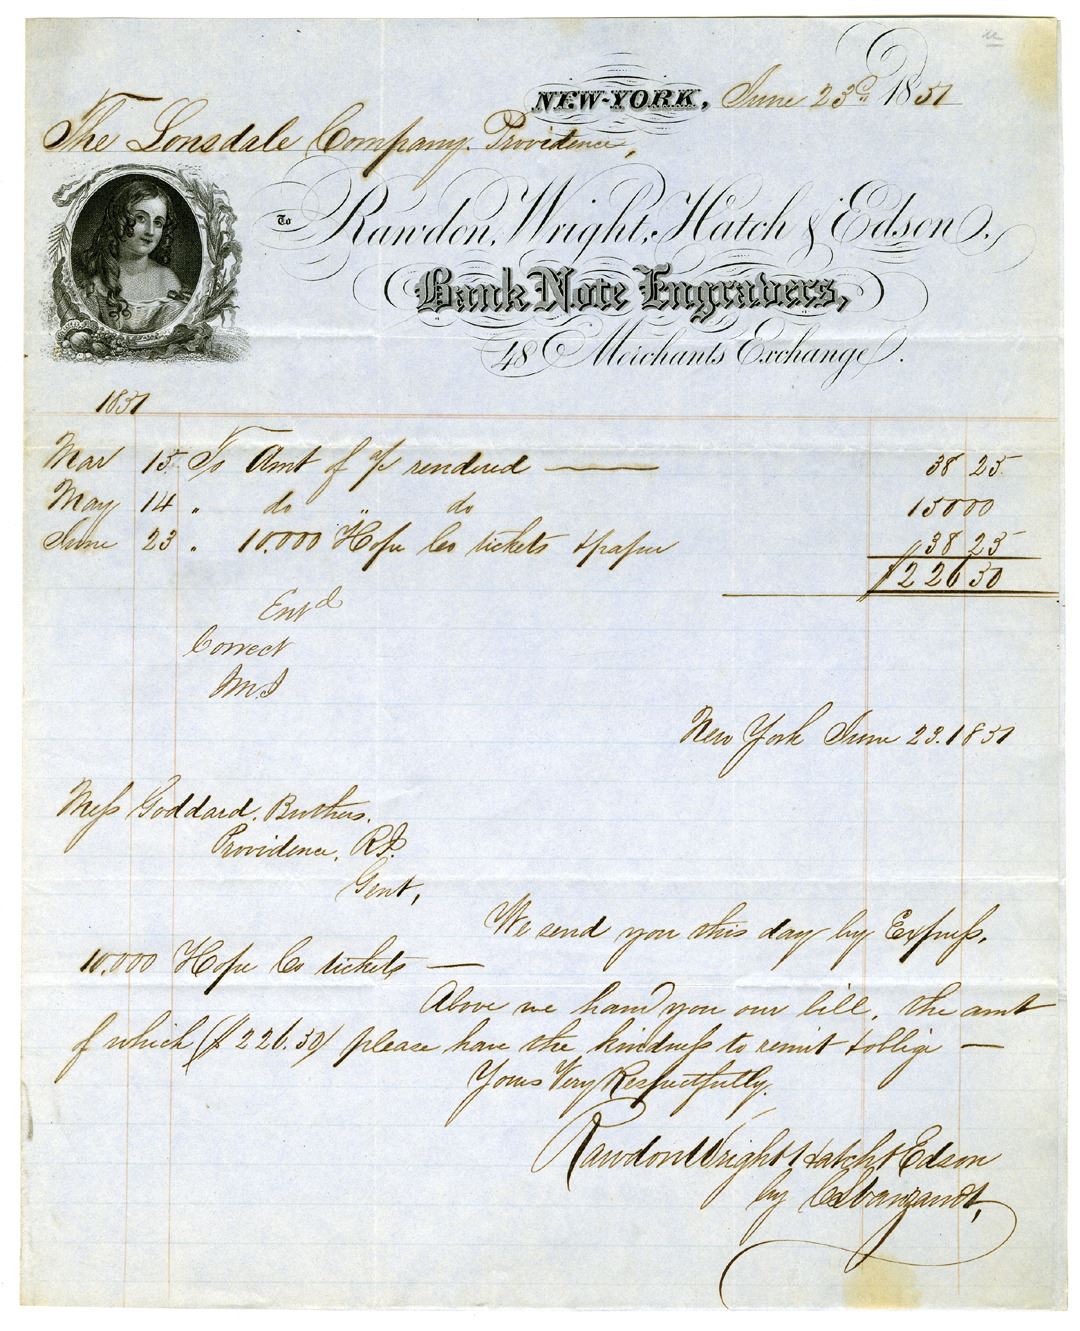 NEW-YORK, June 23d 1851
The Lonsdale Company. Providence,
To Rawdon, Wright, Hatch & Edson,
Bank Note Engravers,
48 Merchants Exchange.
1851
Mar 15 To Amt of a/c rendered — 38 25
May 14 " do " do 150 00
June 23 " 10.000 Hope Co tickets & paper 38 25
$226 50
Entd
Correct
New York June 23. 1851
Mess Goddard. Brothers.
Providence, R.I.
Gent,
We send you this day by Express,
10.000 Hope Co tickets —
Above we hand you our bill, the amt
of which ($226.50) please have the kindness to remit & oblige —
Yours Very Respectfully,
Rawdon Wright Hatch & Edson
by